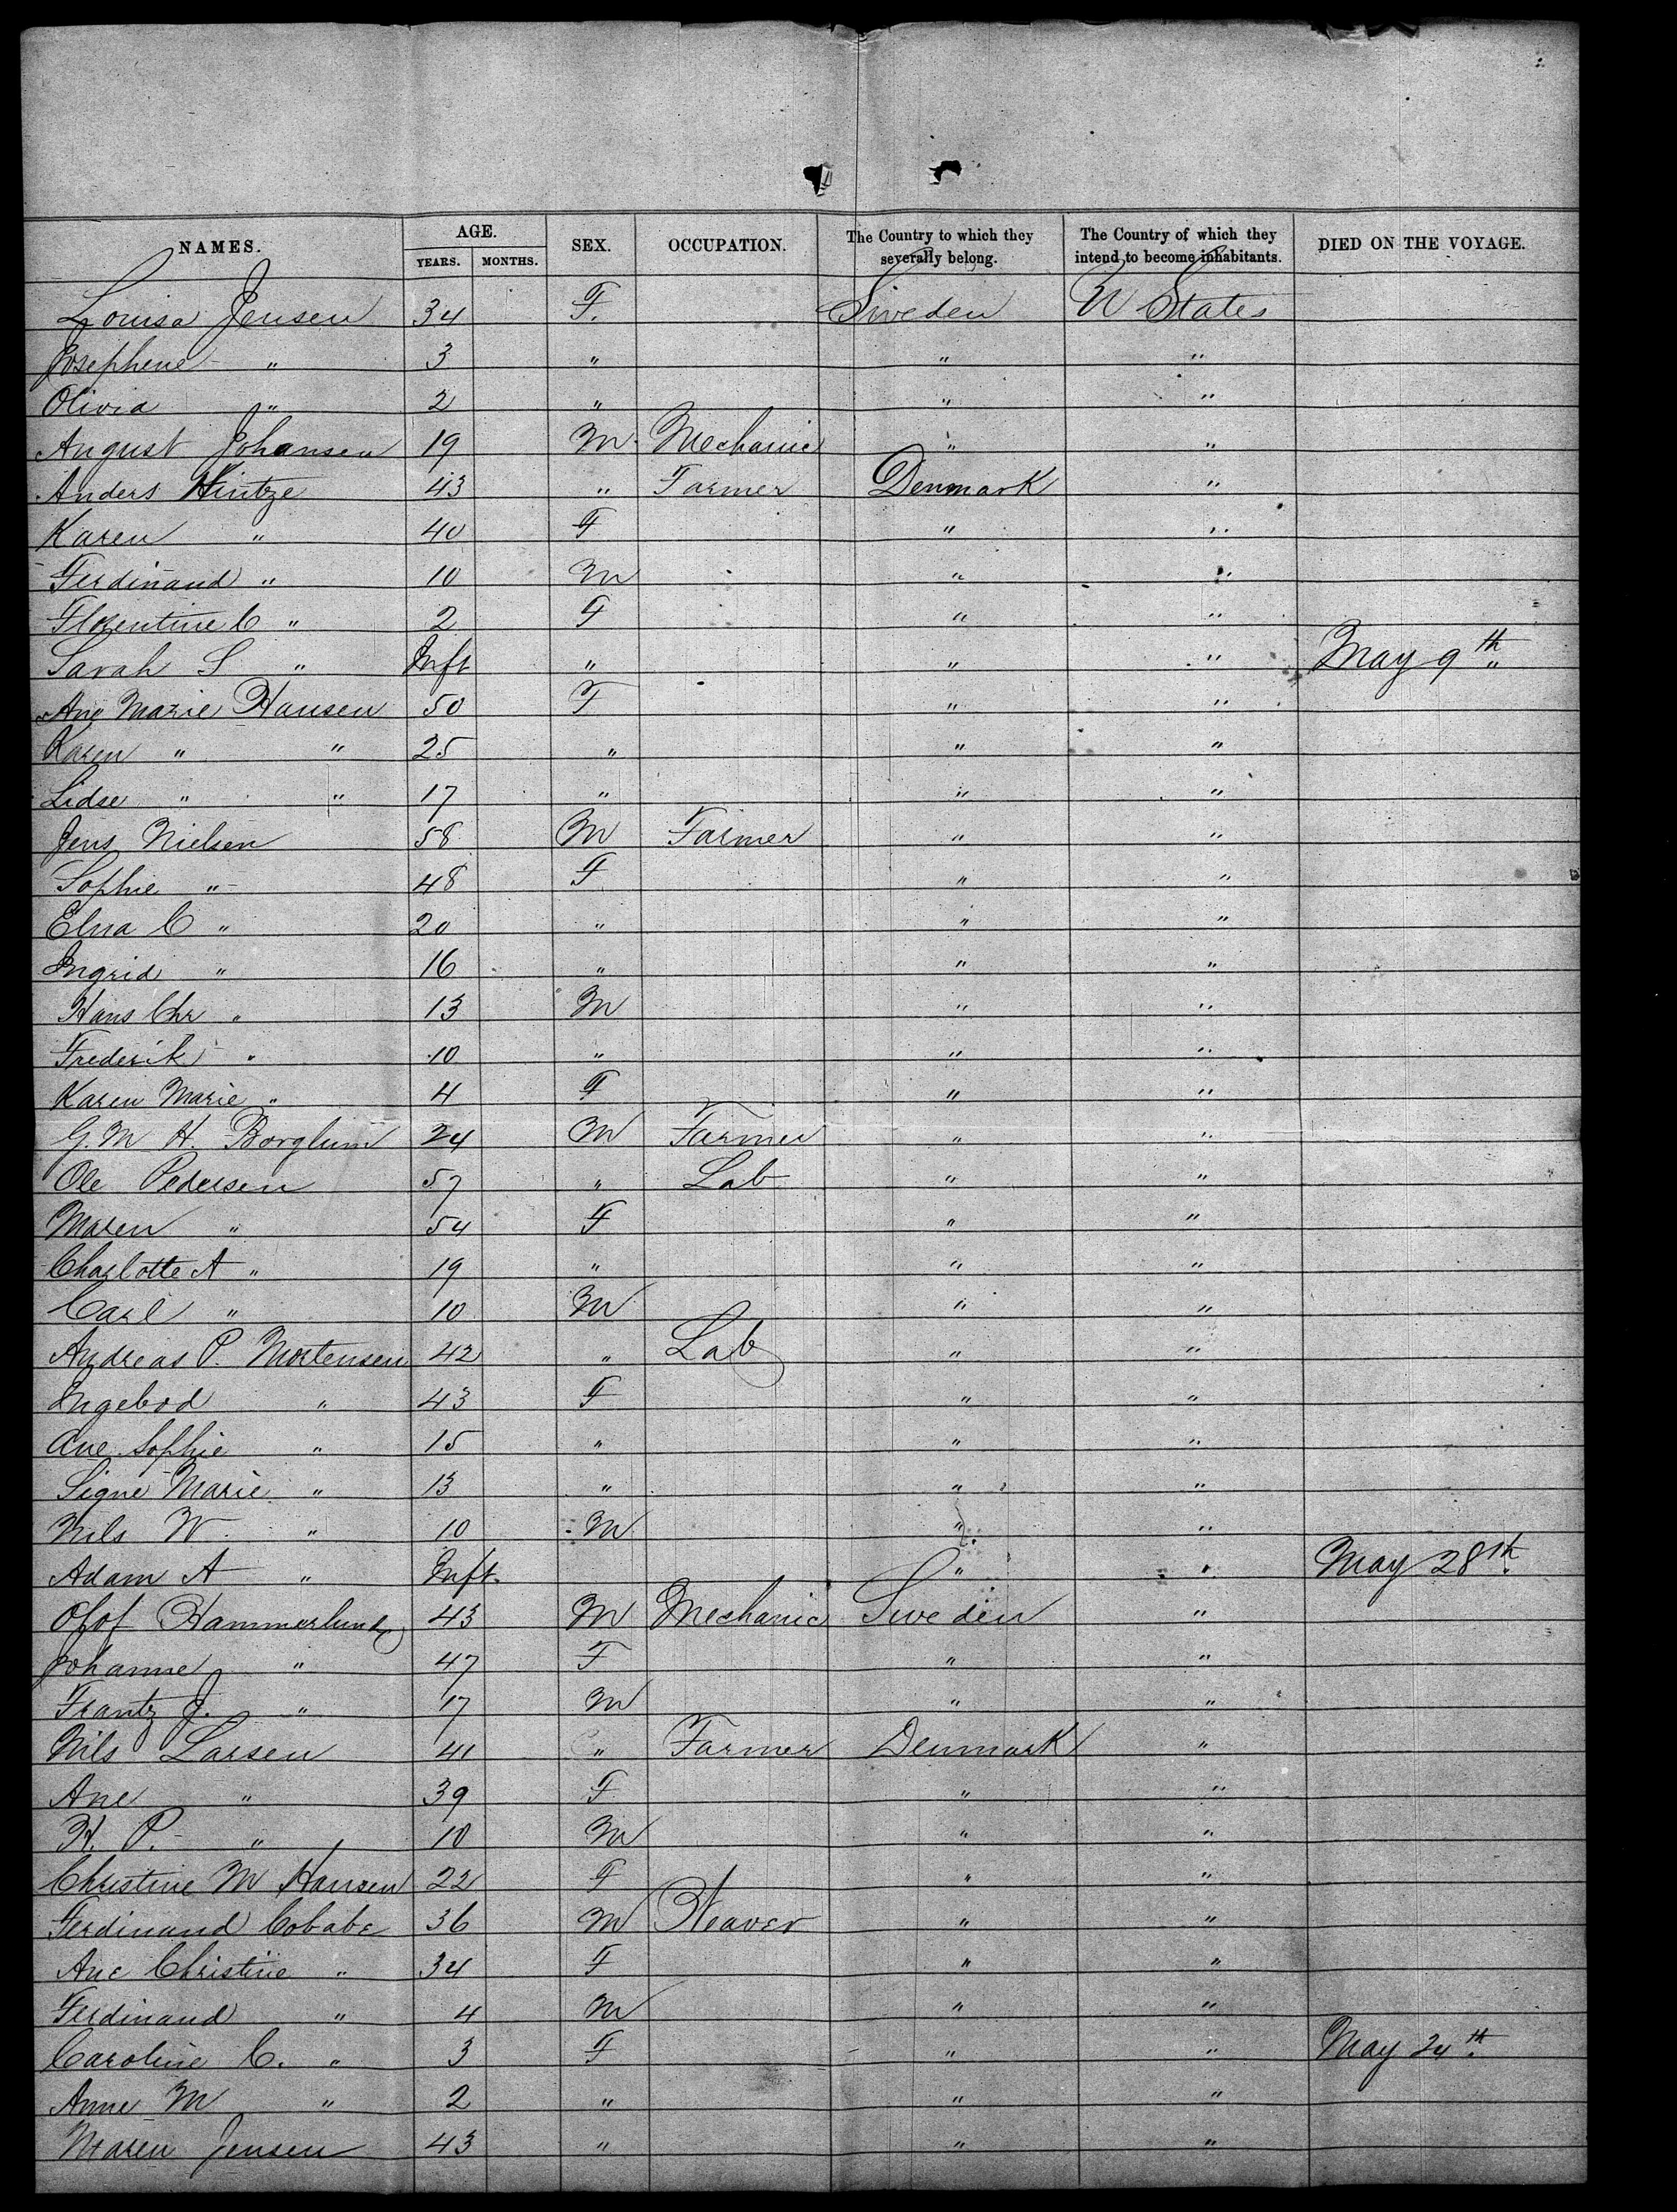 NAMES. AGE. SEX. OCCUPATION. The Country to which they severally belong. The Country of which they intend to become inhabitants. DIED ON THE VOYAGE.
YEARS. MONTHS.
Louisa Jensen 34 F. Sweden U States
Josephene " 3 " " "
Olivia " 2 " " "
August Johansen 19 M. Mechanic " "
Anders Hintze 43 " Farmer Denmark "
Karen " 40 F " "
Ferdinand " 10 M " "
Florentine C " 2 F " "
Sarah S " Inft " " " May 9th
Ane Marie Hansen 50 F " "
Karen " " 25 " " "
Lidse " " 17 " " "
Jens Nielsen 58 M Farmer " "
Sophie " 48 F " "
Elna C " 20 " " "
Ingrid " 16 " " "
Hans Chr " 13 M " "
Frederik " 10 " " "
Karen Marie " 4 F " "
G. M H. Borglum 24 M Farmer " "
Ole Pedersen 57 " Lab " "
Maren " 54 F " "
Charlotte A " 19 " " "
Carl " 10 M " "
Andreas P. Mortensen 42 " Lab " "
Ingebod " 43 F " "
Ane Sophie " 15 " " "
Signe Marie " 13 " " "
Nils W. " 10 M " "
Adam A " Inft. " " May 28th.
Olof Hammerlund 43 M Mechanic Sweden "
Johanne " 47 F " "
Frantz J. " 17 M " "
Nils Larsen 41 " Farmer Denmark "
Ane " 39 F " "
H. P. " 10 M " "
Christine M Hansen 22 F " "
Ferdinand Cobabe 36 M Weaver " "
Ane Christine " 34 F " "
Ferdinand " 4 M " "
Caroline C. " 3 F " " May 24th.
Anne M " 2 " " "
Maren Jensen 43 " " "